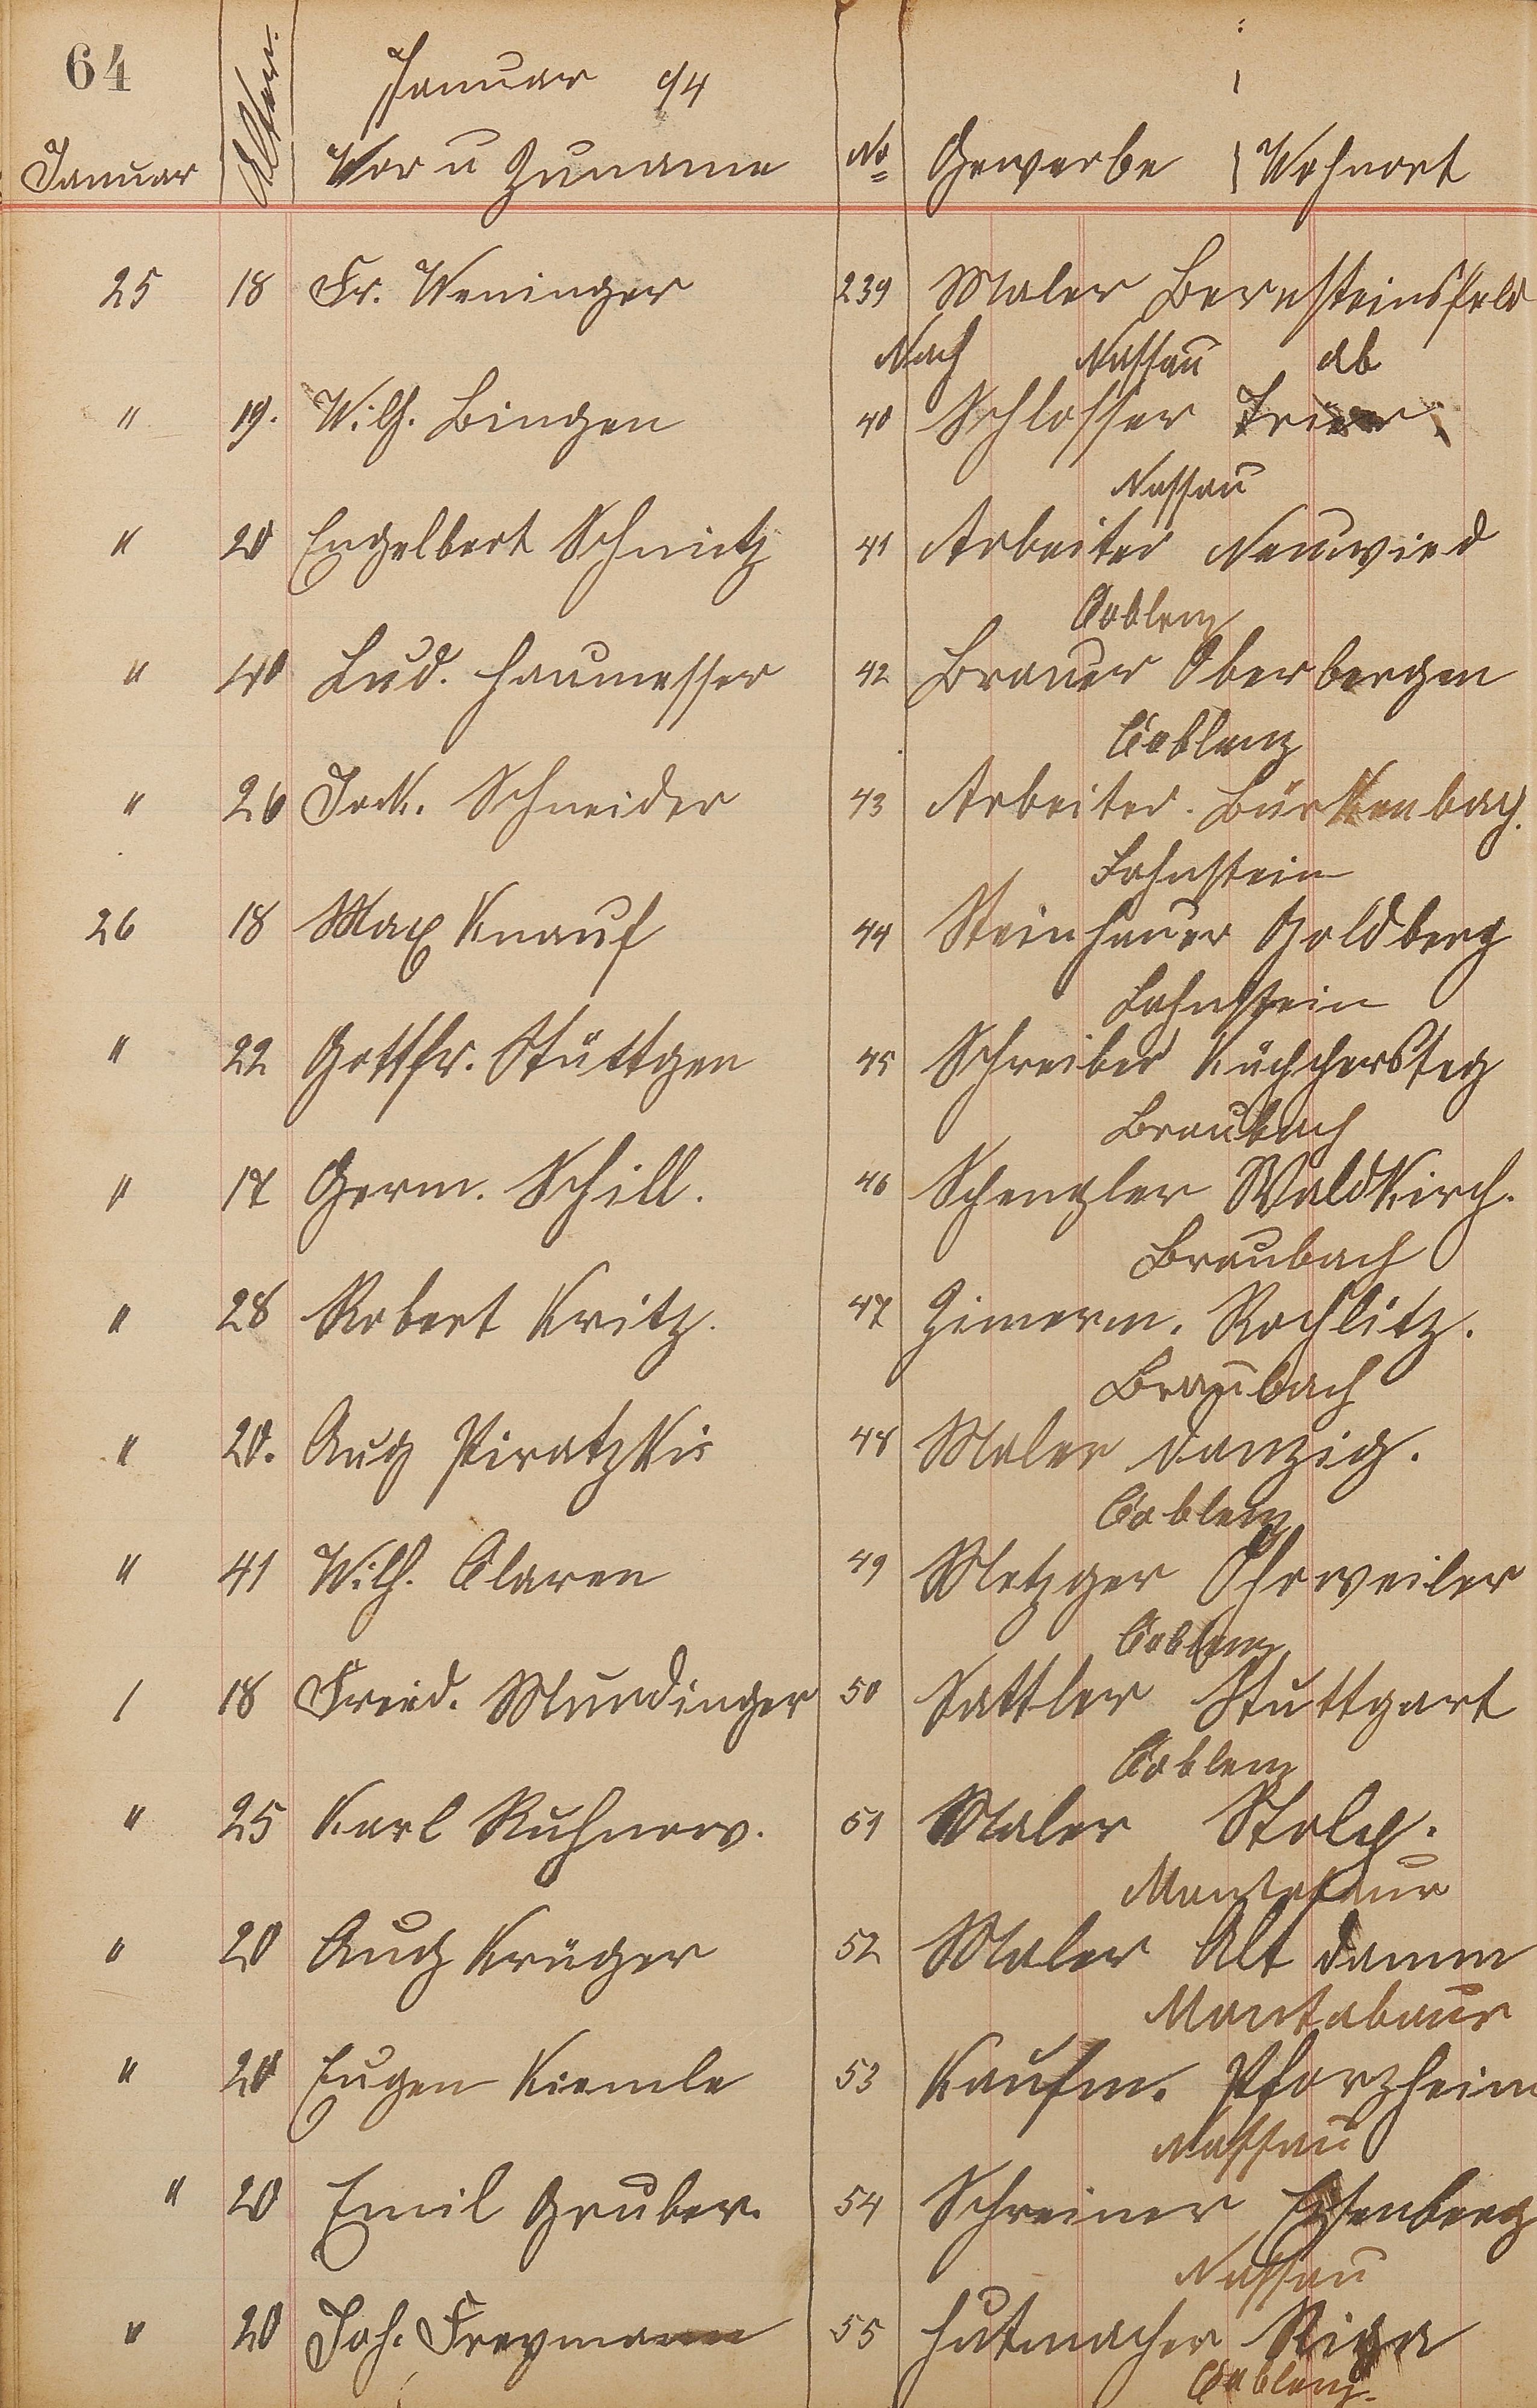 64
Januar 94
Januar Alter. Vor u Zuname No Gewerbe Wohnort
25 18 Fr. Weninger 239 Maler Bernsteinsfeld
Nach Nassau ab
" 19. Wilh. Bingen 40 Schlosser Trier
Nassau
" 20 Engelbert Schmitz 41 Arbeiter Neuwied
Coblenz
" 40 Lud. Haumesser 42 Brauer Oberbergen
Coblenz
" 26 Jak. Schneider 43 Arbeiter. Bürkenbach.
Lahnstein
26 18 Max Knauf 44 Steinhauer Goldberg
Lahnstein
" 22 Gottfr. Stüttgen 45 Schreiber
Braubach
" 17 Herm. Schill. 46 Spengler Waldkirch.
Braubach
" 28 Robert Kritz. 47 Zimerm. Rochlitz.
Braubach
" 20. Aug Piratzkis 48 Maler Danzig.
Coblenz
" 41 Wilh. Claren 49 Metzger Ahrweiler
Coblenz
/ 18 Fried. Mundinger 50 Sattler Stuttgart
Coblenz
" 25 Karl Ruhnow. 51 Maler Stolp.
Montabaur
" 20 Aug Krüger 52 Maler Alt damm
Montabaur
" 20 Eugen Kiemle 53 Kaufm. Pforzheim
Nassau
" 20 Emil Gruber. 54 Schreiner Eisenberg
Nassau
" 20 Joh. Freymann 55 Hutmacher Riga
Coblenz.